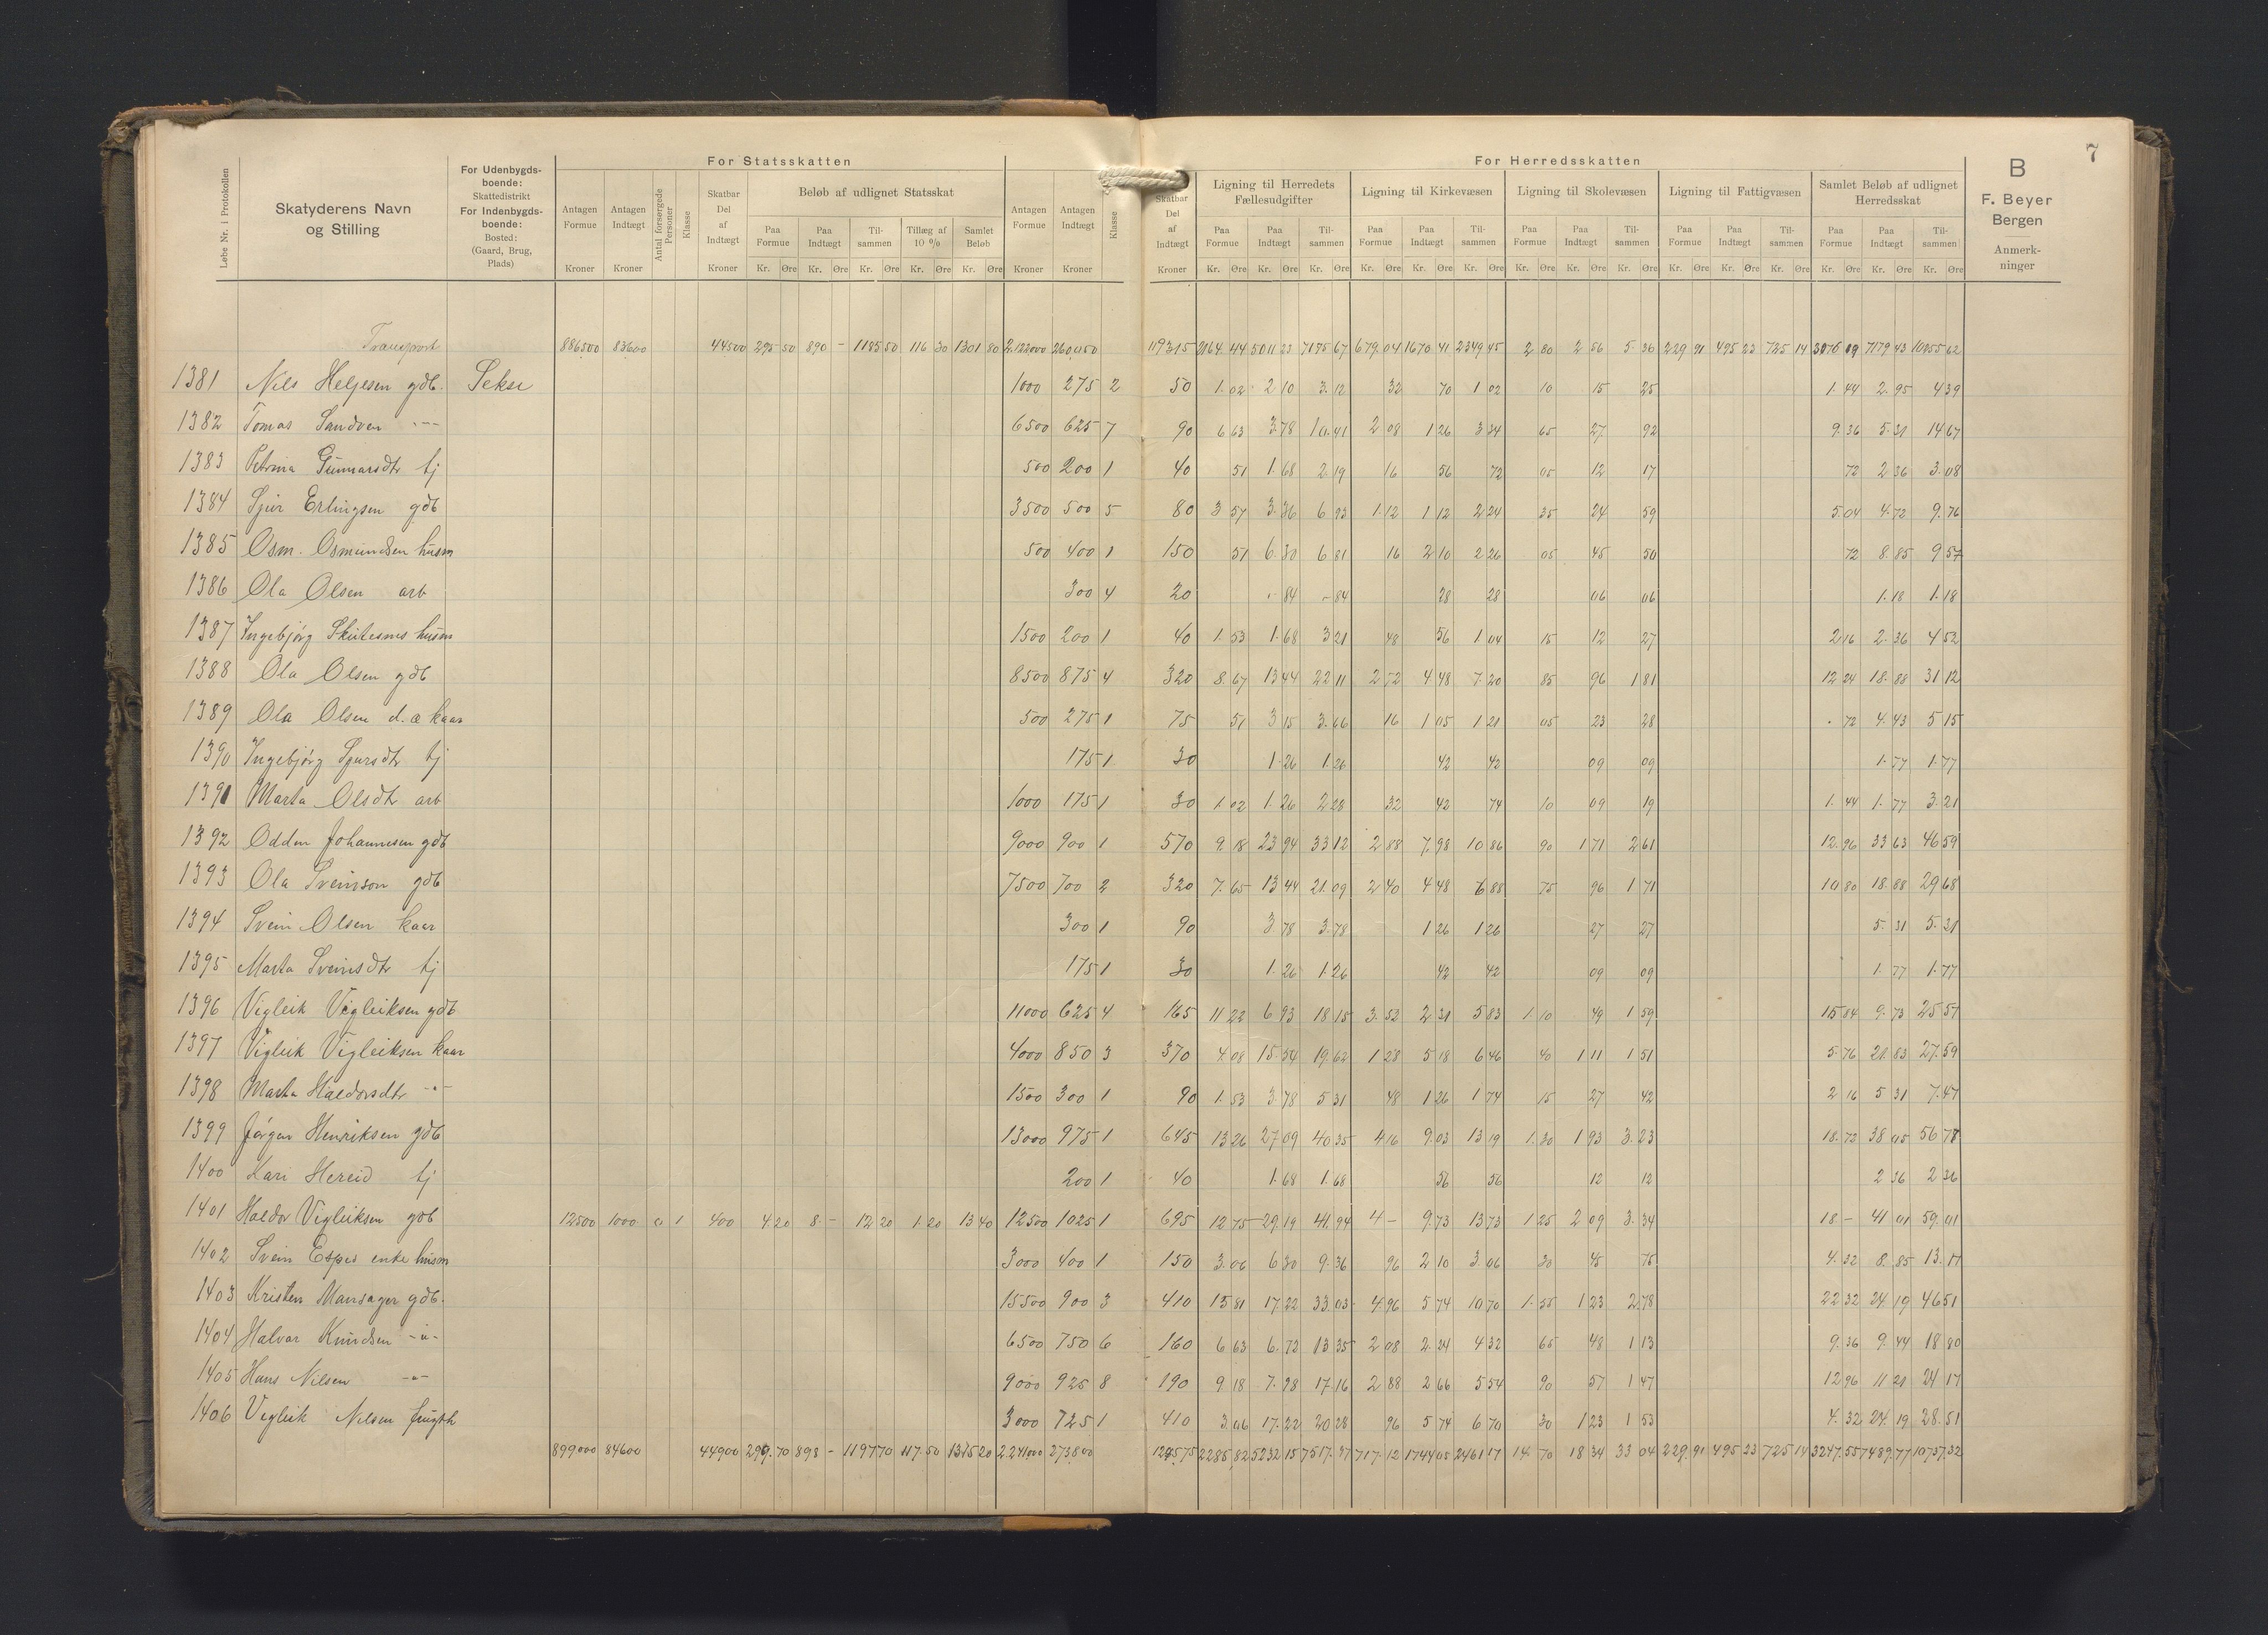 7
For Statsskatten
For Herredsskatten
B
F. Beyer
Bergen
Anmerk-
ninger
Løbe Nr. i Protokollen
Skatyderens Navn
og Stilling
For Udenbygds-
boende:
Skattedistrikt
For Indenbygds-
boende:
Bosted:
(Gaard, Brug,
Plads)
Antagen Formue Kroner
Antagen Indtægt Kroner
Antal forsørgede Personer
Klasse
Skatbar Del af Indtægt Kroner
Beløb af udlignet Statsskat
Paa Formue Kr. Øre
Paa Indtægt Kr. Øre
Til-sammen Kr. Øre
Tillæg af 10 % Kr. Øre
Samlet Beløb Kr. Øre
Antagen Formue Kroner
Antagen Indtægt Kroner
Klasse
Skatbar Del af Indtægt Kroner
Ligning til Herredets Fællesudgifter
Paa Formue Kr. Øre
Paa Indtægt Kr. Øre
Til-sammen Kr. Øre
Ligning til Kirkevæsen
Paa Formue Kr. Øre
Paa Indtægt Kr. Øre
Til-sammen Kr. Øre
Ligning til Skolevæsen
Paa Formue Kr. Øre
Paa Indtægt Kr. Øre
Til-sammen Kr. Øre
Ligning til Fattigvæsen
Paa Formue Kr. Øre
Paa Indtægt Kr. Øre
Til-sammen Kr. Øre
Samlet Beløb af udlignet Herredsskat
Paa Formue Kr. Øre
Paa Indtægt Kr. Øre
Til-sammen Kr. Øre
Transport 886500 83600 44500 295 50 890 - 1185 50 116 30 1301 80 2122000 260050 119315 2164.44 5011 23 7175 67 679.04 1670 41 2349 45 229 91 495 23 725 14 7179 43
1381 Nils Helgesen gdb. Sekse 1000 275 2 50 1.02 2 10 3.12 32 70 1 02 10 15 25 1.44 2.95 4 39
1382 Tomas Sandven -"- 6500 625 7 90 6 63 3.78 10.41 2 08 1 26 3 34 65 27 92 9.36 5.31 14 67
1383 Petrina Gunnarsdtr tj 500 200 1 40 51 1.68 2.19 16 56 72 05 12 17 72 2 36 3.08
1384 Sjur Erlingsen gdb 3500 500 5 80 3 57 3.36 6 93 1.12 1 12 2 24 35 24 59 5.04 4.72 9.76
1385 Osm. Osmundsen husm 500 400 1 150 51 6.30 6 81 16 2 10 2 26 05 45 50 72 8.85 9 57
1386 Ola Olsen arb 300 4 20 84 84 28 28 06 06 1.18 1.18
1387 Ingebjørg Skutesnes husm 1500 200 1 40 1.53 1.68 3 21 48 56 1 04 15 12 27 2 16 2.36 4 52
1388 Ola Olsen gdb 8500 875 4 320 8.67 13 44 22 11 2 72 4.48 7.20 85 96 1 81 12 24 18.88 31 12
1389 Ola Olsen d.æ kaar 500 275 1 75 51 3 15 3.66 16 1 05 1 21 05 23 28 72 4.43 5 15
1390 Ingebjørg Sjursdtr tj 175 1 30 1.26 1.26 42 42 09 09 1.77 1.77
1391 Marta Olsdtr arb 1000 175 1 30 1.02 1.26 2 28 32 42 74 10 09 19 1.44 1.77 3.21
1392 Odden Johannesen gdb 9000 900 1 570 9.18 23 94 33 12 2 88 7.98 10 86 90 1 71 2 61 12.96 33 63 46 59
1393 Ola Sveinson gdb 7500 700 2 320 7.65 13 44 21.09 2 40 4 48 6 88 75 96 1 71 10 80 18.88 29 68
1394 Svein Olsen kaar 300 1 90 3 78 3.78 1 26 1 26 27 27 5.31 5.31
1395 Marta Sveinsdtr tj 175 1 30 1.26 1.26 42 42 09 09 1.77 1.77
1396 Vigleik Vigleiksen gdb 11000 625 4 165 11 22 6 93 18 15 3.52 2 31 5 83 1 10 49 1 59 15 84 9.73 25 57
1397 Vigleik Vigleiksen kaar 4000 850 3 370 4.08 15.54 19.62 1 28 5 18 6 46 40 1 11 1 51 5.76 21.83 27.59
1398 Marta Haldorsdtr -"- 1500 300 1 90 1.53 3.78 5 31 48 1 26 1 74 15 27 42 2 16 5 31 7.47
1399 Jørgen Henriksen gdb 13000 975 1 645 13 26 27.09 40 35 4 16 9.03 13 19 1.30 1 93 3.23 18.72 38 05 56 77
1400 Kari Hereid tj 200 1 40 1.68 1.68 56 56 12 12 2 36 2 36
1401 Haldor Vigleiksen gdb 12500 1000 0 1 400 4 20 8 - 12 20 1.20 13 40 12500 1025 1 695 12 75 29.19 41.94 4 - 9.73 13 73 1 25 2 09 3.34 18 - 41 01 59.01
1402 Svein Espes enke husm 3000 400 1 150 3.06 6 30 9.36 96 2 10 3.06 30 45 75 4.32 8.85 13.17
1403 Kristen Mansager gdb. 15500 900 3 410 15 81 17.22 33.03 4.96 5 74 10 70 1.55 1 23 2.78 22 32 24 19 46 51
1404 Halvor Knudsen -"- 6500 750 6 160 6 63 6.72 13 35 2 08 2.24 4 32 65 48 1 13 9.36 9.44 18 80
1405 Hans Nilsen -"- 9000 925 8 190 9 18 7.98 17.16 2 88 2 66 5 54 90 57 1 47 12 96 11 21 24 17
1406 Vigleik Nilsen 3000 725 1 410 3.06 17.22 20 28 96 5 74 6 70 30 1 23 1 53 4.32 24.19 28.51
899000 84600 44900 299.70 898 - 1197 70 117.50 1315 20 2241000 273800 2285,82 5232 15 7517.97 717.12 1744 05 2461 17 14.70 18 34 33 04 229.91 495 23 725 14 3247.55 7489.77 10737.32